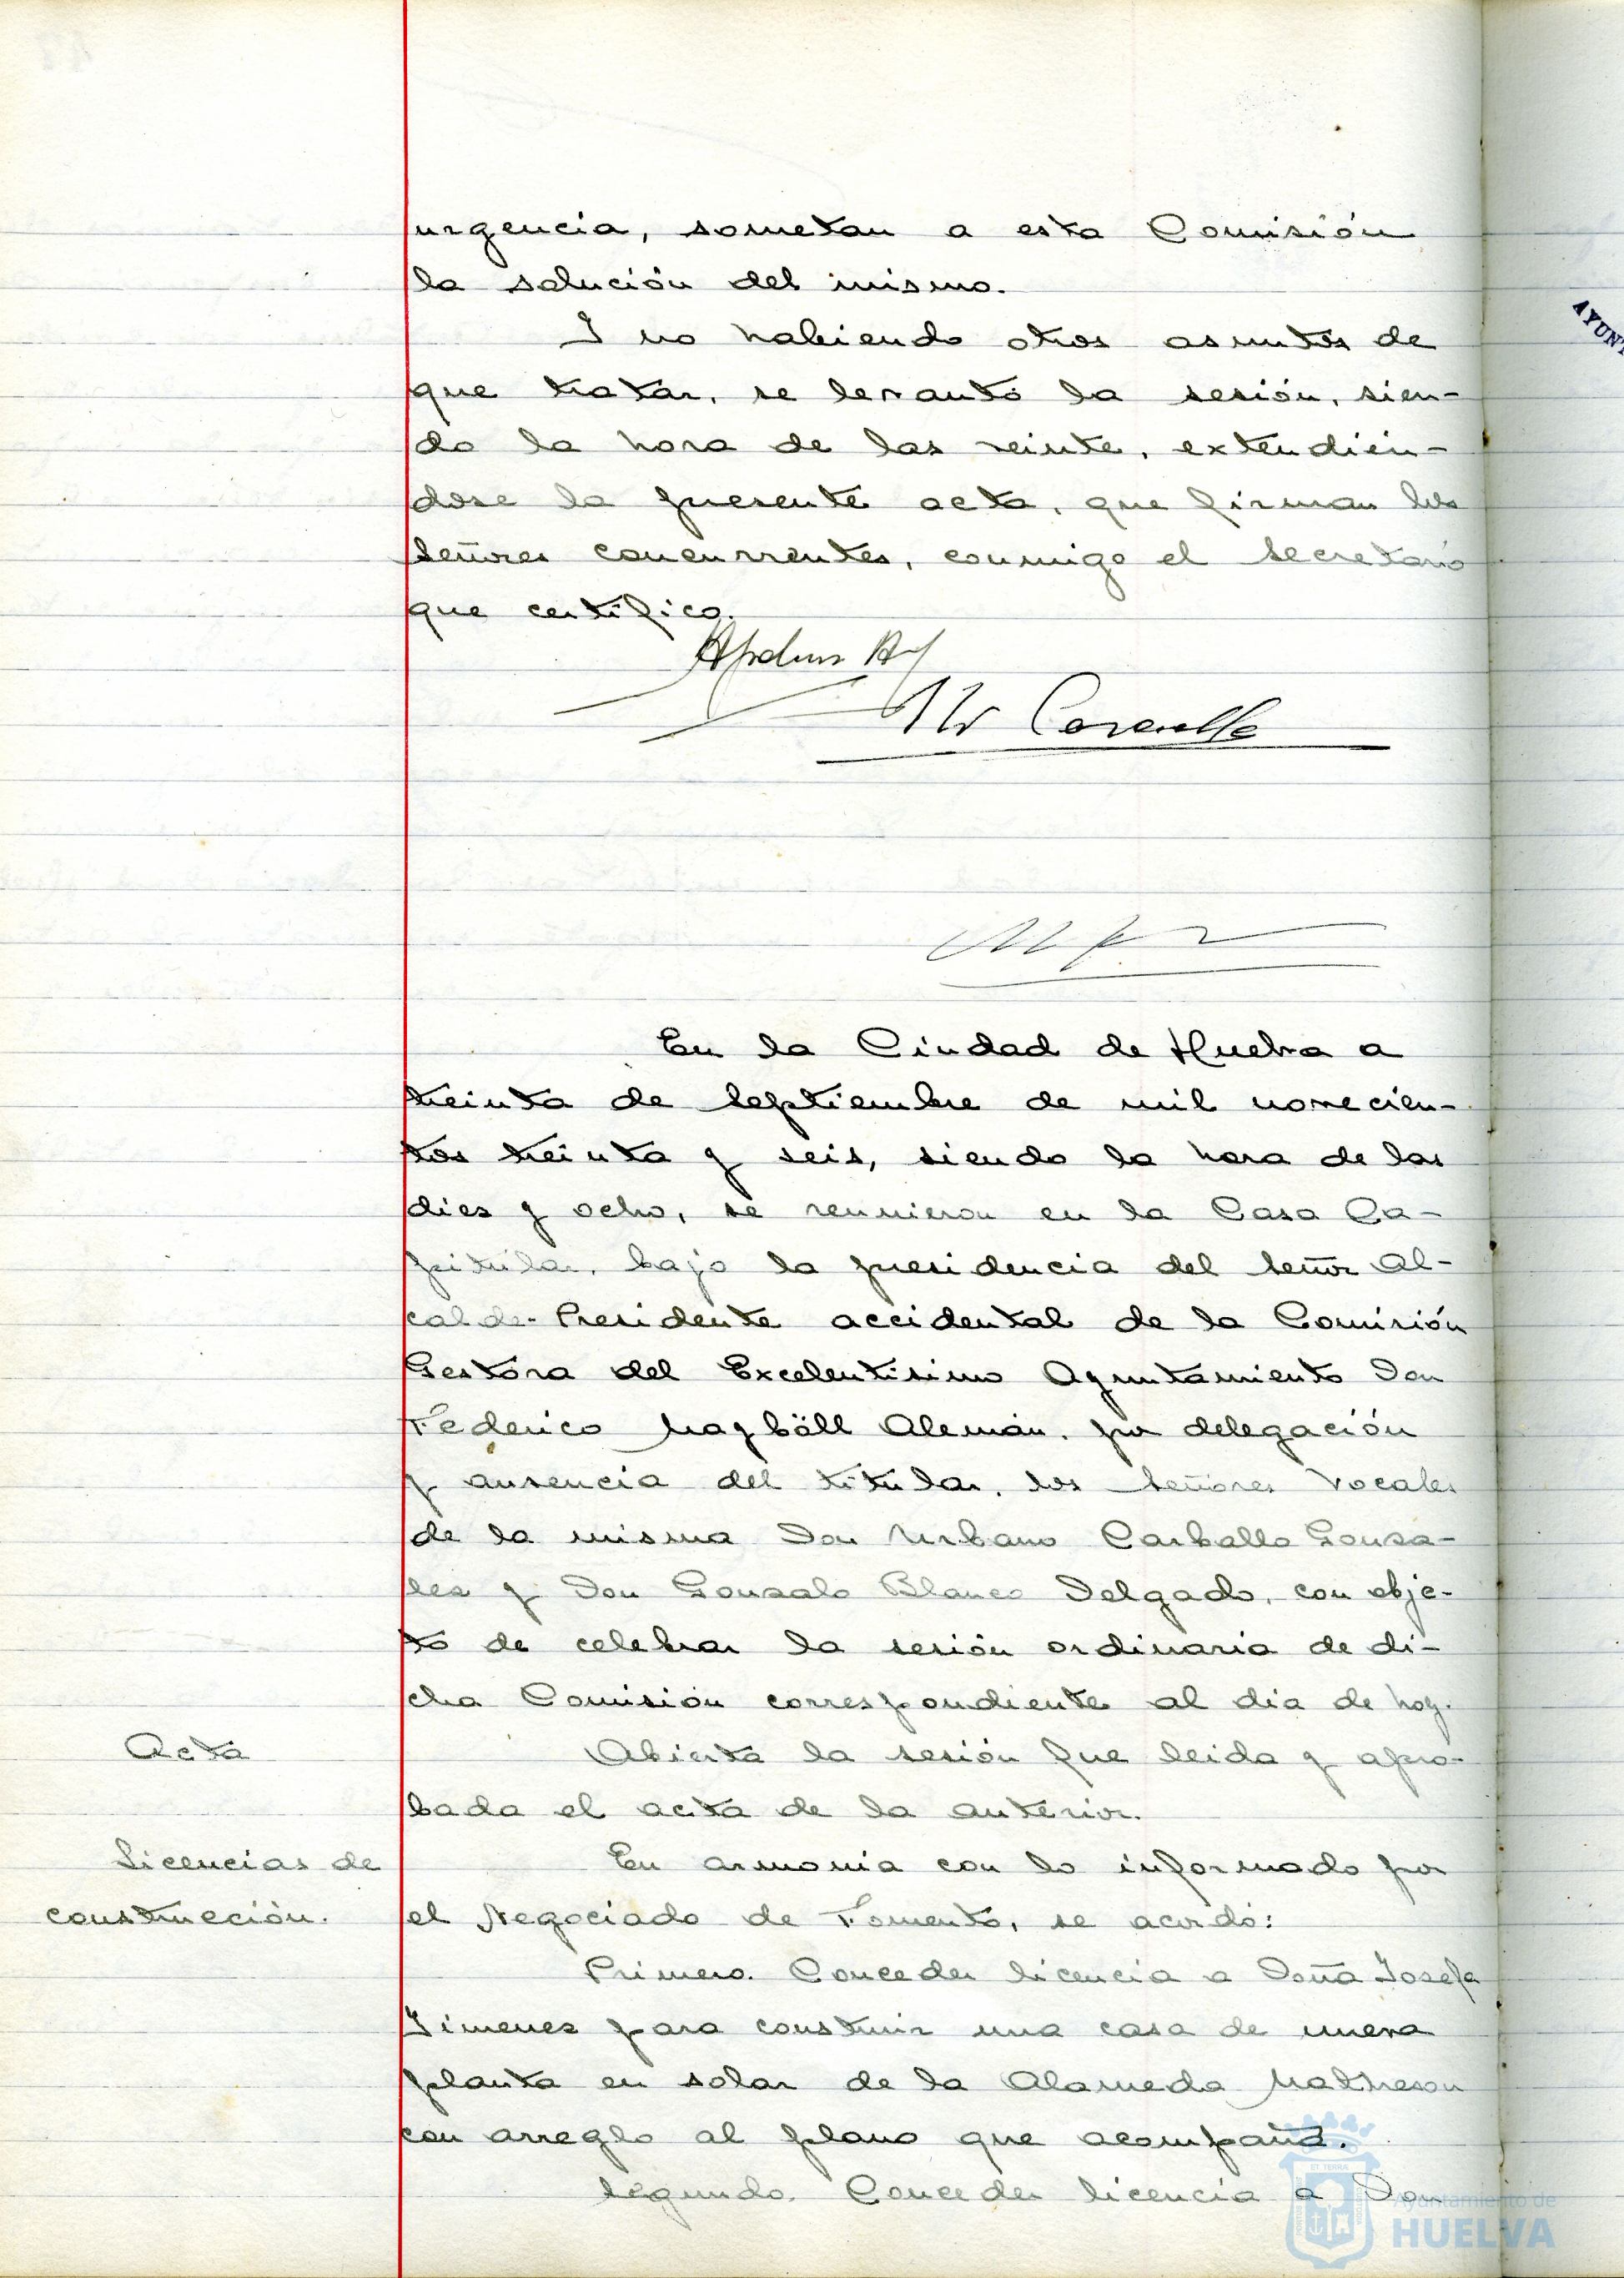 urgencia, sometan a esta Comisión
la solución del mismo.
Y no habiendo otros asuntos de
que tratar, se levantó la sesión, sien-
do la hora de las veinte, extendién-
dose la presente acta, que firman los
señores concurrentes, conmigo el Secretario
que certifico.
En la Ciudad de Huelva a
treinta de Septiembre de mil novecien-
tos treinta y seis, siendo la hora de las
dies y ocho, se reunieron en la Casa Ca-
pitular, bajo la presidencia del Señor Al-
calde-Presidente accidental de la Comisión
Gestora del Excelentísimo Ayuntamiento Don
Federico Mayböll Alemán, por delegación
y ausencia del titular, los Señores Vocales
de la misma Don Urbano Carballo Gonsa-
les y Don Gonsalo Blanco Delgado, con obje-
to de celebrar la sesión ordinaria de di-
cha Comisión correspondiente al día de hoy.
Acta
Abierta la sesión fue leida y apro-
bada el acta de la anterior.
Licencias de
construcción.
En armonía con lo informado por
el Negociado de Fomento, se acordó:
Primero. Conceder licencia a Doña Josefa
Jimenes para construir una casa de nueva
planta en solar de la Alameda Matheson
con arreglo al plano que acompaña.
Segundo. Conceder licencia a Don
AYUNT
Ayuntamiento de
HUELVA